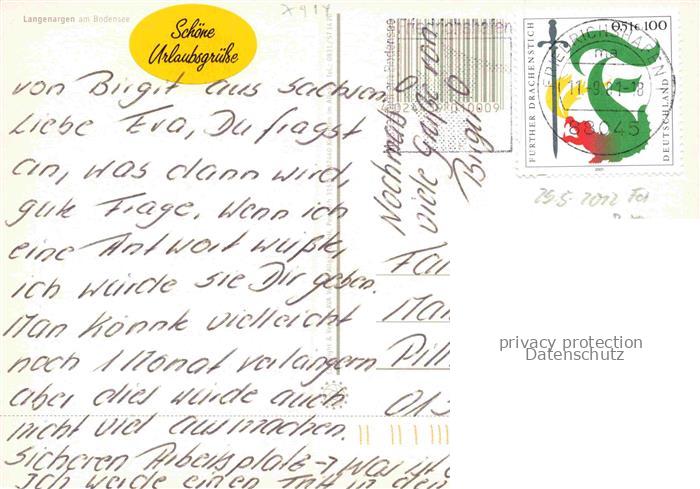 Langenargen am Bodensee
Schöne
Urlaubsgrüße
von Birgit aus Sachsen
Liebe Eva, Du fragst
an, was dann wird,
gute Frage. Wenn ich
eine Antwort wüßte,
ich würde sie Dir geben.
Man könnte vielleicht
noch 1 Monat verlängern
aber dies würde auch
nicht viel ausmachen.
Sicheren Arbeitsplatz → War ist
Ich werde einen in den
Nochmals
viele Grüße von
Birgit
FURTHER DRACHENSTICH
0,51€ 100
DEUTSCHLAND
FRIEDRICHSHAFEN
11-9.01-18
88045
29.5.2012
Fa
Ma
Pill
01
privacy protection
Datenschutz